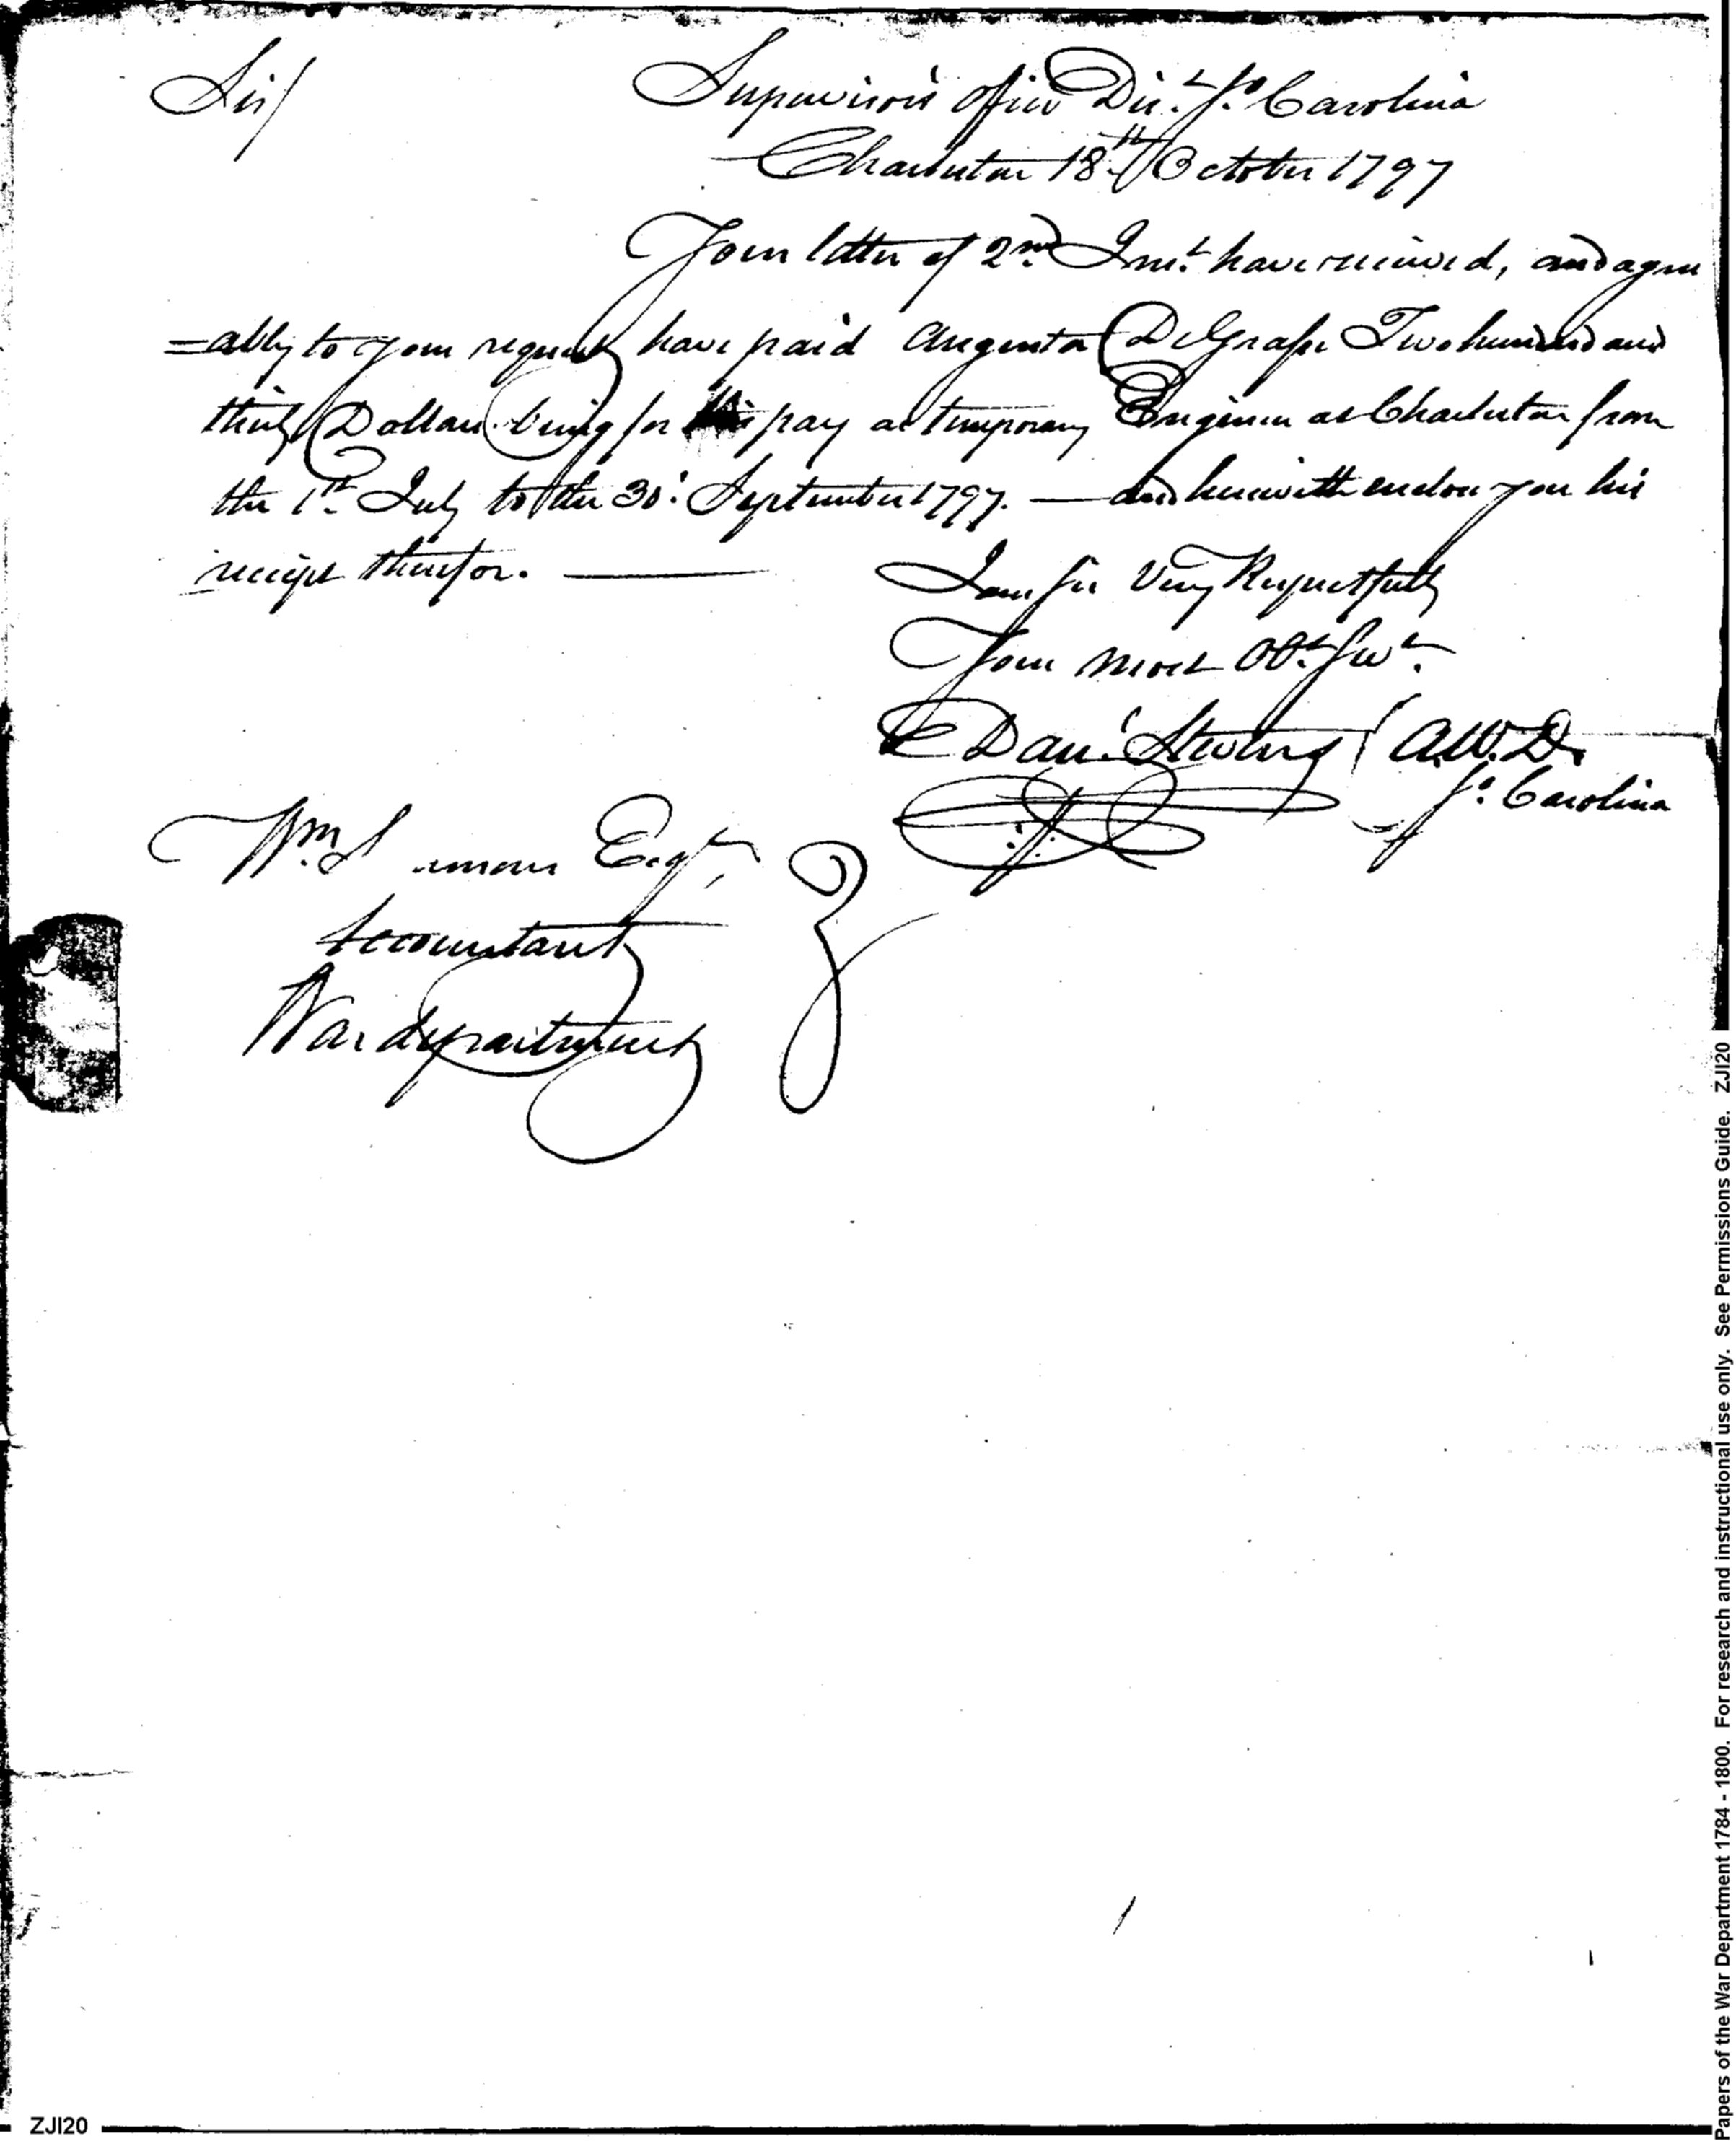 Sir/
Supervisor's office Dis.t So Carolina
Charleston 18.th October 1797
Your letter of 2.nd Inst. have received, and agree
=ably to your request have paid Augusta DeGrasse Two hundred and
thirty Dollars being for his pay as temporary Engineer at Charleston from
the 1.st July to the 30.' September 1797. — and herewith enclose you his
receipt therefor. —
I am Sir Very Respectfully
Your most Obt. Servt.
Danl. Stevens A.W.D.
So. Carolina
Wm. Simmons Esqr.
Accountant
War department
ZJI20
Papers of the War Department 1784 - 1800. For research and instructional use only. See Permissions Guide. ZJI20